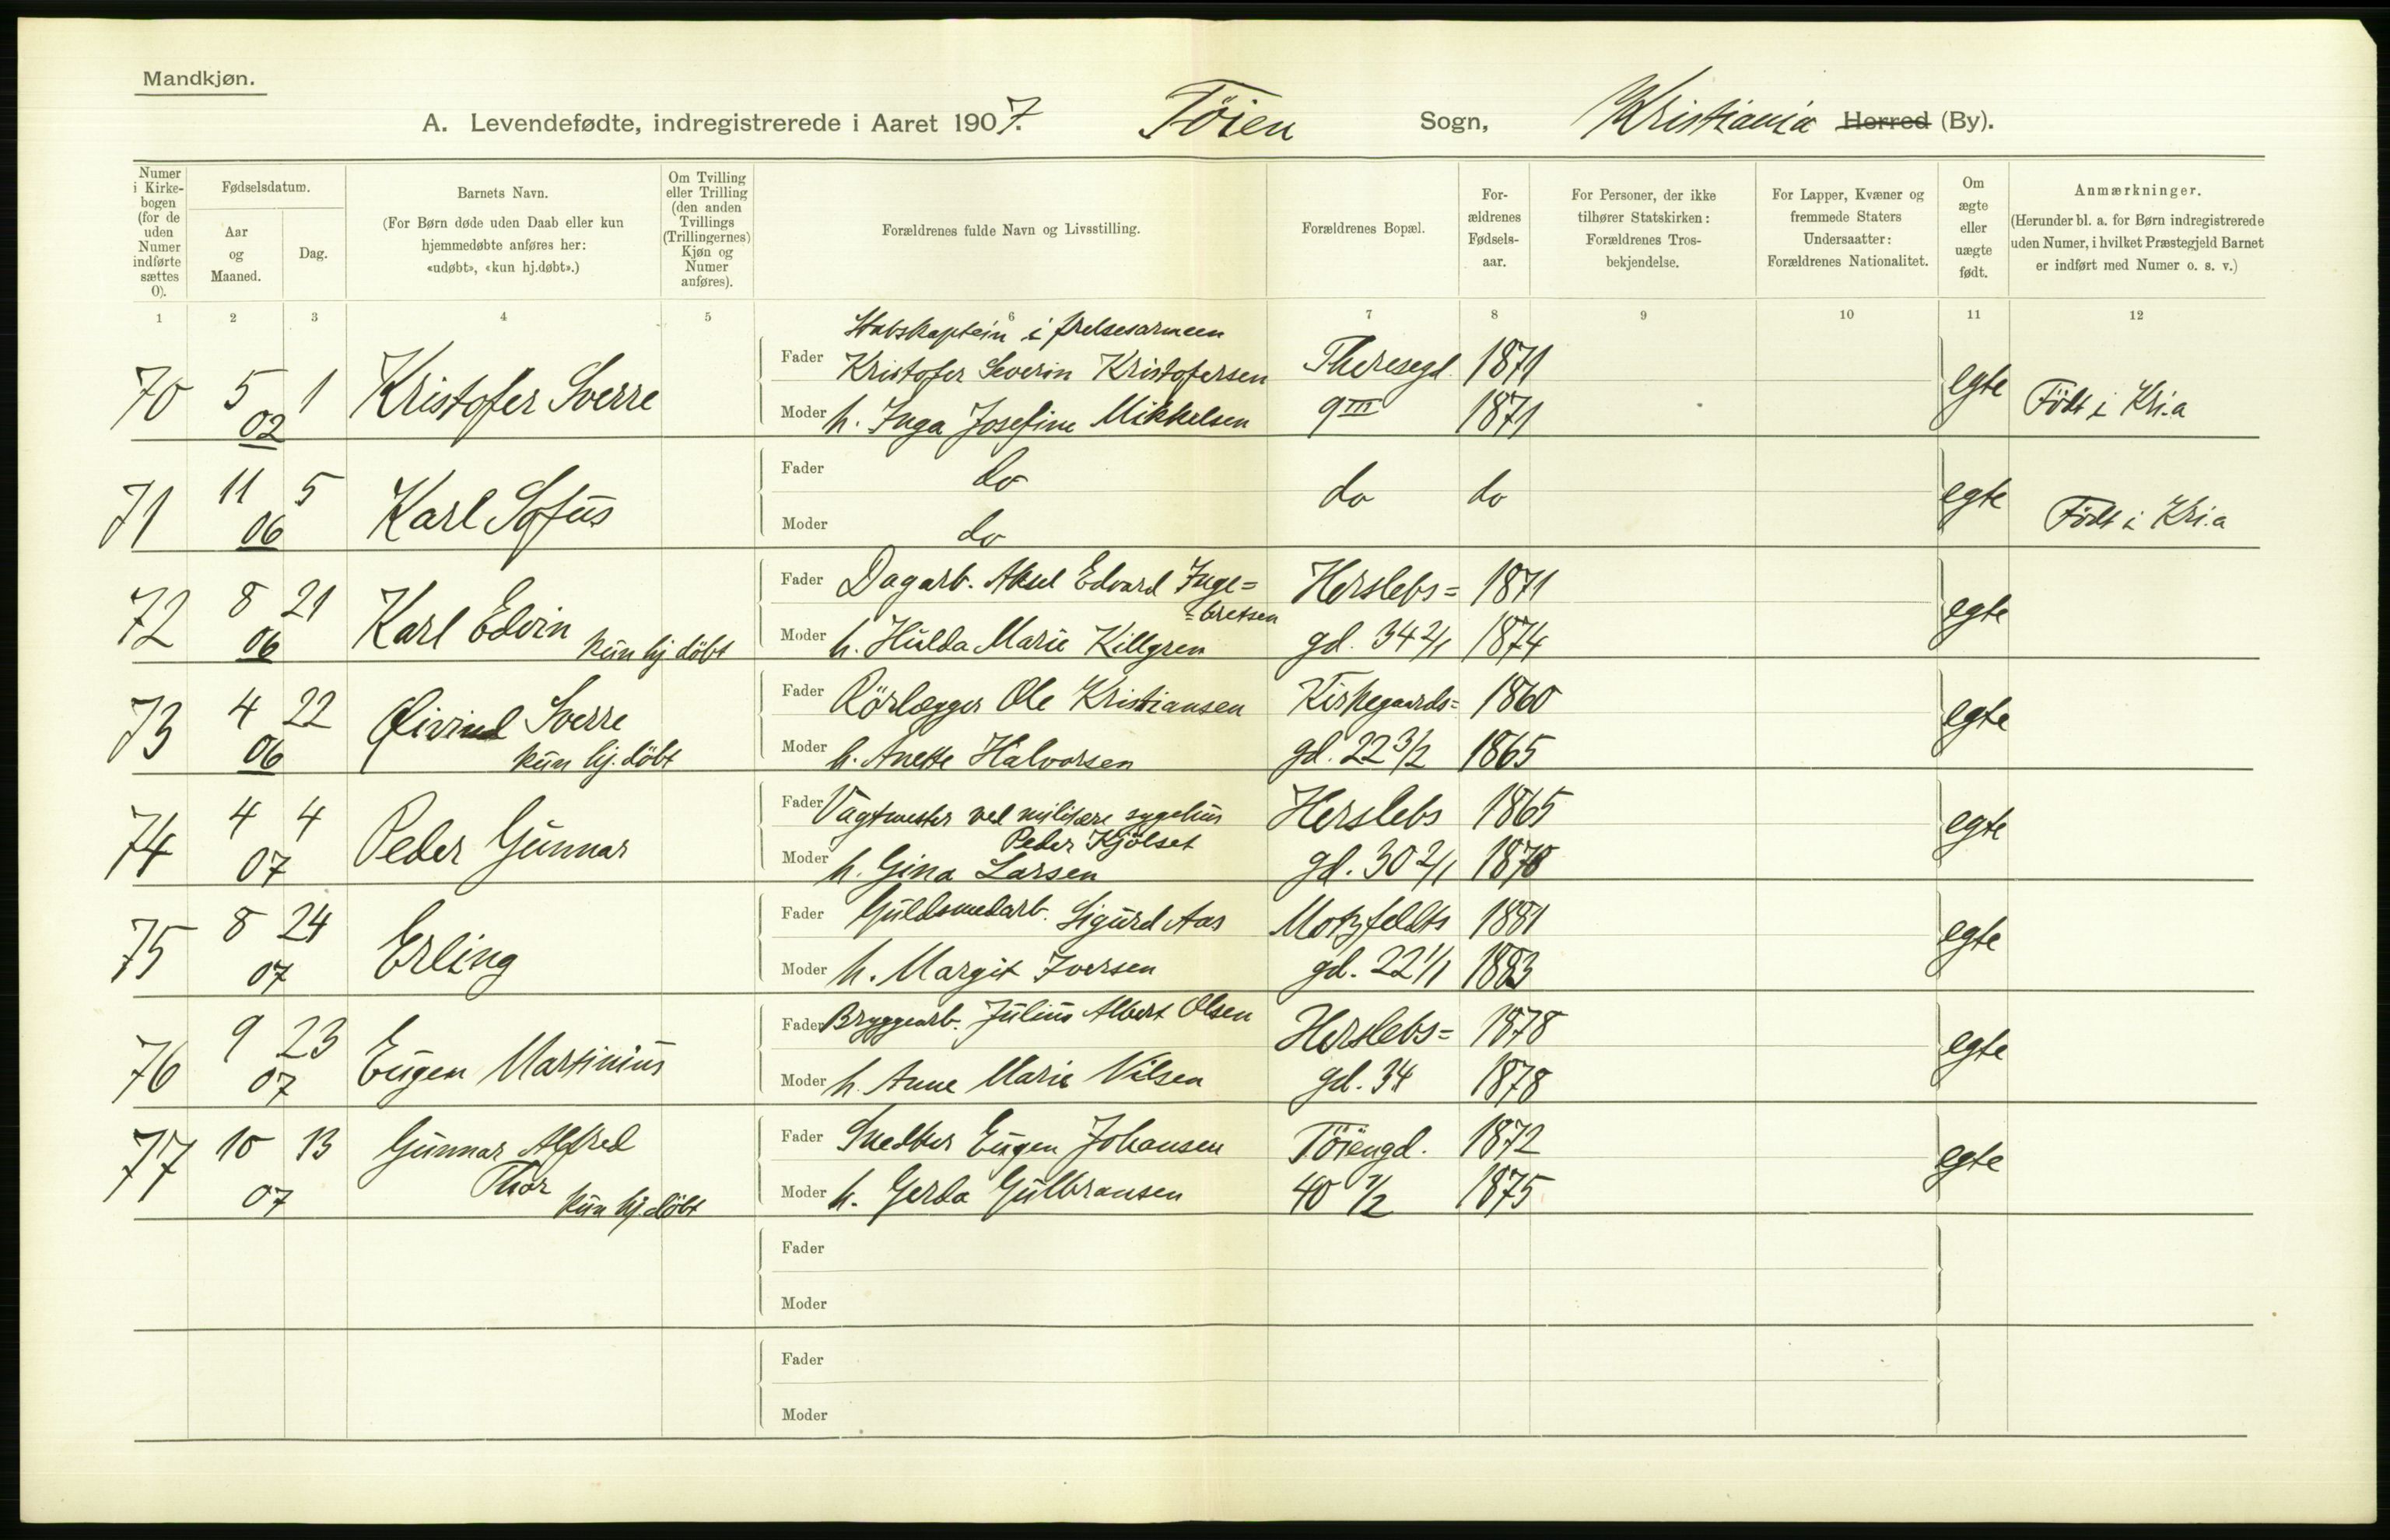 Mandkjøn.
A. Levendefødte, indregistrerede i Aaret 1907. Töien Sogn, Kristiania Herred (By).
Numer i Kirke-bogen (for de uden Numer indførte sættes 0).
Fødselsdatum.
Aar og Maaned.
Dag.
Barnets Navn.
(For Børn døde uden Daab eller kun
hjemmedøbte anføres her:
«udøbt», «kun hj.døbt».)
Om Tvilling eller Trilling (den anden Tvillings (Trillingernes) Kjøn og Numer anføres).
Forældrenes fulde Navn og Livsstilling.
Forældrenes Bopæl.
For-ældrenes Fødsels-aar.
For Personer, der ikke
tilhører Statskirken:
Forældrenes Tros-
bekjendelse.
For Lapper, Kvæner og
fremmede Staters
Undersaatter:
Forældrenes Nationalitet.
Om ægte eller uægte født.
Anmærkninger.
(Herunder bl. a. for Børn indregistrerede
uden Numer, i hvilket Præstegjeld Barnet
er indført med Numer o. s. v.)
1 2 3 4 5 6 7 8 9 10 11 12
Stabskaptein i frelsesarmeen
70 5 1 Kristofer Sverre Fader Kristofer Severin Kristofersen Theresegd. 1871 egte Födt i Kr.a
02 Moder h. Inga Josefine Mikkelsen 9 III 1871
71 11 5 Karl Sofus Fader do do do egte Födt i Kr.a
06 Moder do
72 8 21 Karl Edvin Fader Dagarb. Aksel Edvard Inge= Herslebs= 1871 egte
=bretsen
06 kun hj döbt Moder h. Hulda Marie Killgren gd. 34 2/1 1874
73 4 22 Øivind Sverre Fader Rörlægger Ole Kristiansen Kirkegaards= 1860 egte
06 kun hj. döbt Moder h. Anette Halvorsen gd. 22 3/2 1865
74 4 4 Peder Gunnar Fader Vagtmester ved militære sygehus Herslebs 1865 egte
Peder Kjölset
07 Moder h. Gina Larsen gd. 30 2/1 1870
75 8 24 Erling Fader Guldsmedarb. Sigurd Aas Motzfeldts 1881 egte
07 Moder h. Margit Iversen gd. 22 1/1 1883
76 9 23 Eugen Martinius Fader Bryggearb. Julius Albert Olsen Herslebs= 1878 egte
07 Moder h. Anne Marie Nilsen gd. 34 1878
77 10 13 Gunnar Alfred Fader Snedker Eugen Johansen Töiengd. 1872 egte
Thor
07 kun hj. döbt Moder h. Gerda Gulbransen 40 1/2 1875
Fader
Moder
Fader
Moder